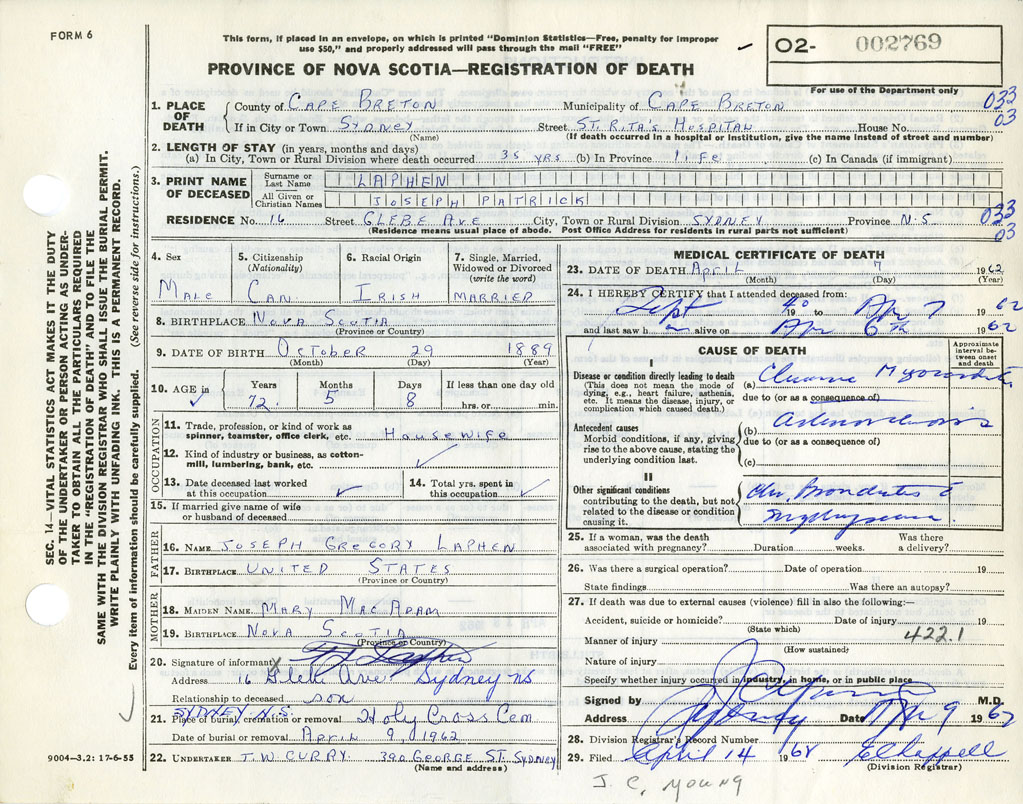 FORM 6
This form, if placed in an envelope, on which is printed "Dominion Statistics—Free, penalty for improper
use $50," and properly addressed will pass through the mail "FREE"
O2- 002769
For use of the Department only
PROVINCE OF NOVA SCOTIA—REGISTRATION OF DEATH
SEC. 14—VITAL STATISTICS ACT MAKES IT THE DUTY
OF THE UNDERTAKER OR PERSON ACTING AS UNDER-
TAKER TO OBTAIN ALL THE PARTICULARS REQUIRED
IN THE "REGISTRATION OF DEATH" AND TO FILE THE
SAME WITH THE DIVISION REGISTRAR WHO SHALL ISSUE THE BURIAL PERMIT.
WRITE PLAINLY WITH UNFADING INK. THIS IS A PERMANENT RECORD.
Every item of information should be carefully supplied. (See reverse side for instructions.)
1. PLACE OF DEATH
County of CAPE BRETON Municipality of CAPE BRETON 033
If in City or Town SYDNEY Street ST. RITA'S HOSPITAL House No. 03
(Name) (If death occurred in a hospital or institution, give the name instead of street and number)
2. LENGTH OF STAY (in years, months and days)
(a) In City, Town or Rural Division where death occurred 35 yrs (b) In Province life (c) In Canada (if immigrant)
3. PRINT NAME OF DECEASED
Surname or Last Name LAPHEN
All Given or Christian Names JOSEPH PATRICK
RESIDENCE No. 16 Street GLEBE AVE City, Town or Rural Division SYDNEY Province N.S 033
(Residence means usual place of abode. Post Office Address for residents in rural parts not sufficient) 03
4. Sex 5. Citizenship (Nationality) 6. Racial Origin 7. Single, Married, Widowed or Divorced (write the word)
MALE CAN. IRISH MARRIED
8. BIRTHPLACE NOVA SCOTIA
(Province or Country)
9. DATE OF BIRTH October 29 1889
(Month) (Day) (Year)
10. AGE in Years Months Days If less than one day old
72 5 8 hrs. or min.
OCCUPATION
11. Trade, profession, or kind of work as
spinner, teamster, office clerk, etc. Housewife
12. Kind of industry or business, as cotton-
mill, lumbering, bank, etc.
13. Date deceased last worked
at this occupation
14. Total yrs. spent in
this occupation
15. If married give name of wife
or husband of deceased
FATHER
16. NAME JOSEPH GREGORY LAPHEN
17. BIRTHPLACE UNITED STATES
(Province or Country)
MOTHER
18. MAIDEN NAME MARY MAC ADAM
19. BIRTHPLACE NOVA SCOTIA
(Province or Country)
20. Signature of informant
Address 16 Glebe Ave Sydney NS
Relationship to deceased son
SYDNEY N.S.
21. Place of burial, cremation or removal Holy Cross Cem
Date of burial or removal APRIL 9, 1962
22. UNDERTAKER T.W CURRY 390 GEORGE ST. SYDNEY
(Name and address)
9004—3.2: 17-6-55
MEDICAL CERTIFICATE OF DEATH
23. DATE OF DEATH April 7 1962
(Month) (Day) (Year)
24. I HEREBY CERTIFY that I attended deceased from:
Sept 1940 to Apr 7 1962
and last saw h im alive on Apr 6th 1962
CAUSE OF DEATH
Approximate interval be-tween onset and death
I
Disease or condition directly leading to death
(This does not mean the mode of
dying, e.g., heart failure, asthenia,
etc. It means the disease, injury, or
complication which caused death.)
(a) Chronic Myocarditis
due to (or as a consequence of)
Antecedent causes
Morbid conditions, if any, giving
rise to the above cause, stating the
underlying condition last.
(b)
due to (or as a consequence of)
(c)
II
Other significant conditions
contributing to the death, but not
related to the disease or condition
causing it.
Chr. Bronchitis &
25. If a woman, was the death
associated with pregnancy? Duration weeks. Was there
a delivery?
26. Was there a surgical operation? Date of operation 19
State findings Was there an autopsy?
27. If death was due to external causes (violence) fill in also the following:—
Accident, suicide or homicide? Date of injury 19
(State which)
Manner of injury 422.1
(How sustained)
Nature of injury
Specify whether injury occurred in industry, in home, or in public place
Signed by M.D.
Address Sydney Date Apr 9 1962
28. Division Registrar's Record Number
29. Filed April 14 1962
(Division Registrar)
J. C. Young